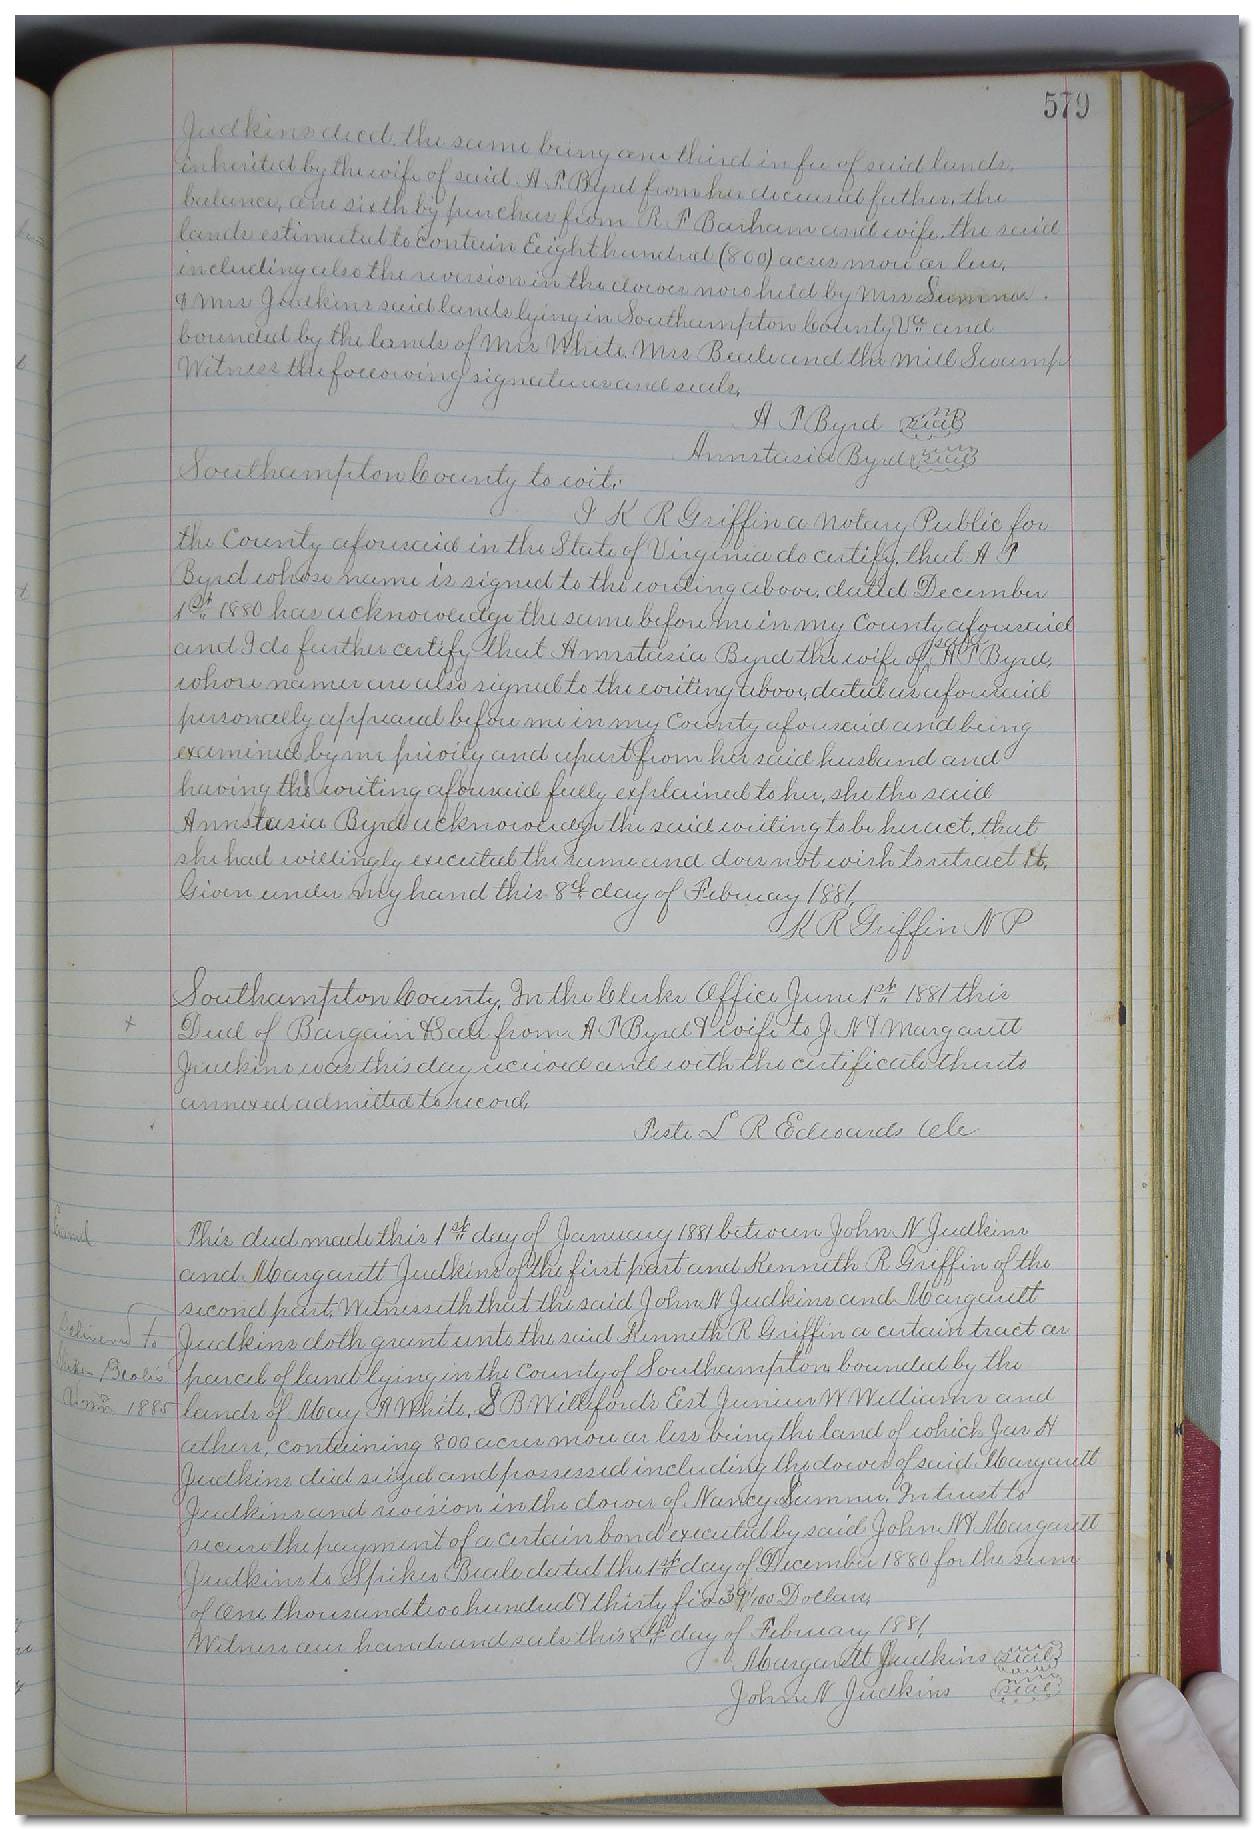 579
Judkins died. the same being one third in fee of said lands,
inherited by the wife of said A P Byrd from her deceased father, the
balance, one sixth by purchas from R P Barham and wife. the said
lands estimated to contain Eight hundred (800) acres more or less,
including also the reversion in the dower now held by Mrs Sumner
& Mrs Judkins said lands lying in Southampton County Va and
bounded by the lands of Mrs White, Mrs Beale and the Mill Swamp
Witness the following signatures and seals,
A P Byrd seal
Annstasia Byrd seal
Southampton County to wit:
I K R Griffin a Notary Public for
the County aforesaid in the State of Virginia do certify, that A P
Byrd whose name is signed to the writing above, dated December
1st 1880 has acknowledge the same before me in my County aforesaid
and I do further certify that Annstasia Byrd the wife of said A P Byrd,
whose names are also signed to the writing above, dated as aforesaid
personally appeared before me in my County aforesaid and being
examined by me privily and apart from her said husband and
having the writing aforesaid fully explained to her, she the said
Annstasia Byrd acknowledge the said writing to be her act, that
she had willingly executed the same and does not wish to retract it.
Given under my hand this 8th day of February 1881,
K R Griffin N P
Southampton County, In the Clerks Office June 1st 1881 this
Deed of Bargain & Sale from A P Byrd & wife to J N & Margarett
Judkins was this day received and with the certificate thereto
annexed admitted to record,
Teste L R Edwards Clk
This deed made this 1st day of January 1881 between John N Judkins
and Margarett Judkins of the first part and Kenneth R Griffin of the
second part, Witnesseth that the said John N Judkins and Margarett
Judkins doth grant unto the said Kenneth R Griffin a certain tract or
parcel of land lying in the County of Southampton bounded by the
lands of May A White, S B Williford's Est Junius W Williams and
others, containing 800 acres more or less being the land of which Jas H
Judkins died seized and possessed including the dower of said Margarett
Judkins and revision in the dower of Nancy Sumner, In trust to
secure the payment of a certain bond executed by said John N & Margarett
Judkins to Spikes Beale dated the 1st day of December 1880 for the sum
of One thousand two hundred & thirty five 39/100 Dollars,
Witness our hands and seals this 8th day of February 1881,
Margarett Judkins seal
John N Judkins seal
Examd
Delivered to
Beale
1885